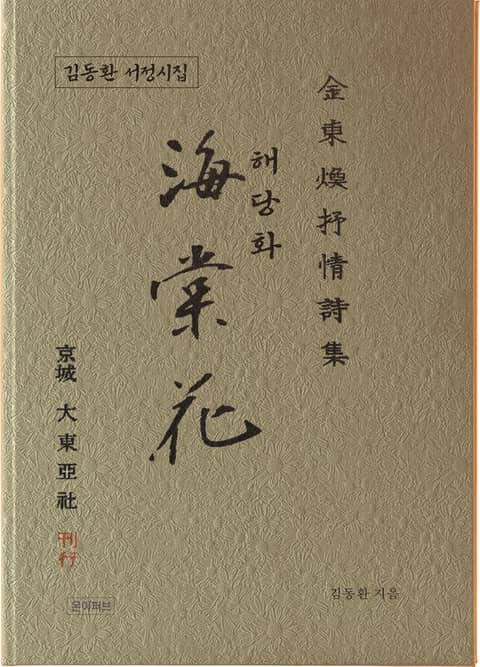 김동환 서정시집
金東煥抒情詩集
해당화
海棠花
京城 大東亞社
刊行
김동환 지음
온이퍼브